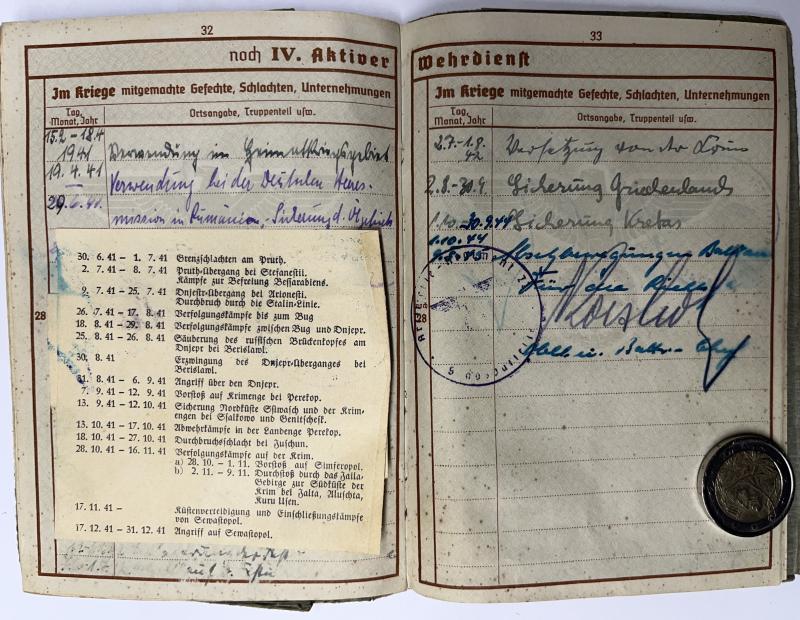 32
noch IV. Aktiver
Im Kriege mitgemachte Gefechte, Schlachten, Unternehmungen
Tag, Monat, Jahr
Ortsangabe, Truppenteil usw.
15.2 – 18.4 1941
Verwendung im Heimatkriegsgebiet
19.4.41
Verwendung bei der Deutschen Heeres-
mission in Rumänien, Sicherung d. Ölgebiets
28
30. 6. 41 – 1. 7. 41 Grenzschlachten am Pruth.
2. 7. 41 – 8. 7. 41 Pruth-Übergang bei Stefanestii.
Kämpfe zur Befreiung Bessarabiens.
9. 7. 41 – 25. 7. 41 Dnjestr-Übergang bei Arionestii.
Durchbruch durch die Stalin-Linie.
26. 7. 41 – 17. 8. 41 Verfolgungskämpfe bis zum Bug
18. 8. 41 – 29. 8. 41 Verfolgungskämpfe zwischen Bug und Dnjepr.
25. 8. 41 – 26. 8. 41 Säuberung des russischen Brückenkopfes am
Dnjepr bei Berislawl.
30. 8. 41 Erzwingung des Dnjepr-Überganges bei
Berislawl.
31. 8. 41 – 6. 9. 41 Angriff über den Dnjepr.
7. 9. 41 – 12. 9. 41 Vorstoß auf Krimenge bei Perekop.
13. 9. 41 – 12. 10. 41 Sicherung Nordküste Ssiwasch und der Krim-
engen bei Ssalkowo und Genitschesk.
13. 10. 41 – 17. 10. 41 Abwehrkämpfe in der Landenge Perekop.
18. 10. 41 – 27. 10. 41 Durchbruchsschlacht bei Juschun.
28. 10. 41 – 16. 11. 41 Verfolgungskämpfe auf der Krim.
a) 28. 10. – 1. 11. Vorstoß auf Simferopol.
b) 2. 11. – 9. 11. Durchstoß durch das Jaila-
Gebirge zur Südküste der
Krim bei Jalta, Aluschta,
Kuru Usen.
17. 11. 41 – Küstenverteidigung und Einschließungskämpfe
von Sewastopol.
17. 12. 41 – 31. 12. 41 Angriff auf Sewastopol.
33
Wehrdienst
Im Kriege mitgemachte Gefechte, Schlachten, Unternehmungen
Tag, Monat, Jahr
Ortsangabe, Truppenteil usw.
2.7.-1.8. 42 Versetzung von der Krim
2.8.-30.9. Sicherung Griechenlands
1.10. 30.9.44 Sicherung Kretas
1.10.44 Absetzbewegungen Balkan
Für die Richtigkeit
28